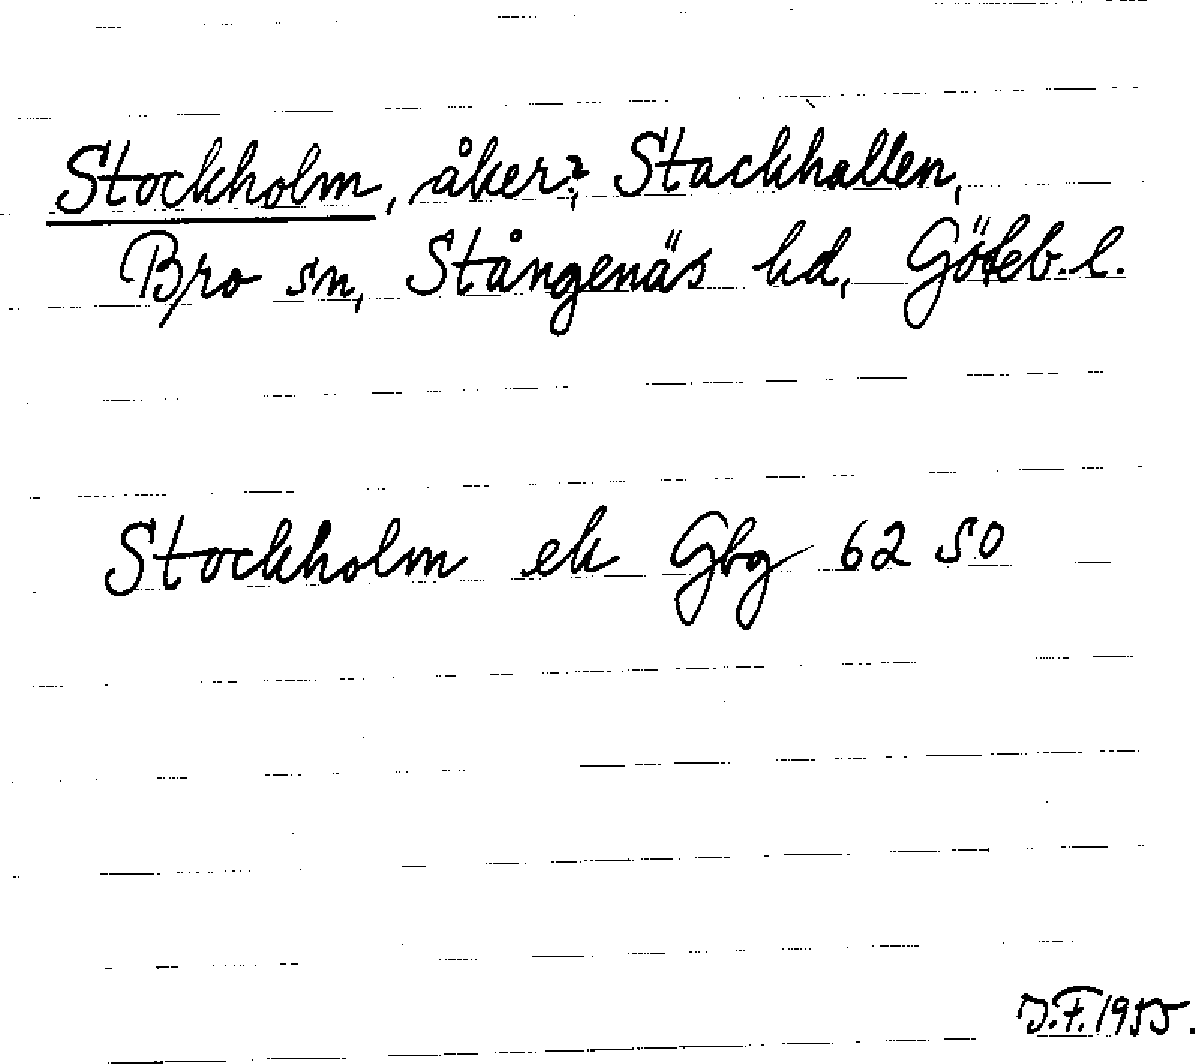 Stockholm, åker?, Stackhallen,
Bro sn, Stångenäs hd, Göteb. l.
Stockholm ek Gbg 62 50
J.F. 1955.